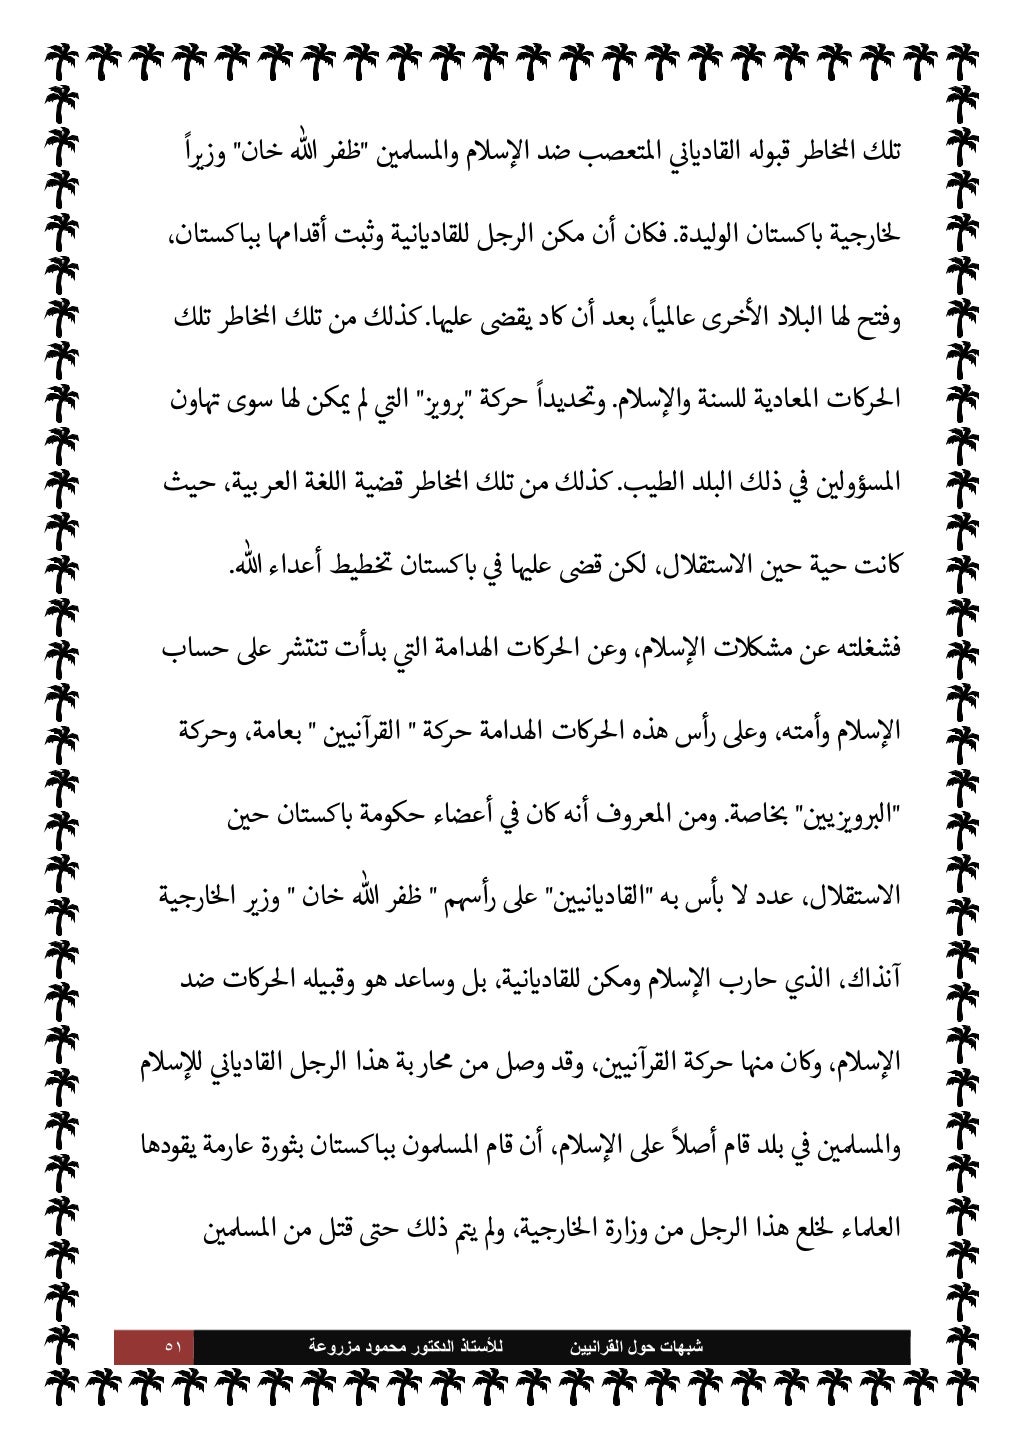 تلك المخاطر قبوله القادياني المتعصب ضد الإسلام والمسلمين "ظفر الله خان" وزيراً
لخارجية باكستان الوليدة. فكان أن مكن الرجل للقاديانية وثبت أقدامها بباكستان،
وفتح لها البلاد الأخرى عالمياً، بعد أن كاد يقضى عليها. كذلك من تلك المخاطر تلك
الحركات المعادية للسنة والإسلام. وتحديداً حركة "برويز" التي لم يمكن لها سوى تهاون
المسؤولين في ذلك البلد الطيب. كذلك من تلك المخاطر قضية اللغة العربية، حيث
كانت حية حين الاستقلال، لكن قضى عليها في باكستان تخطيط أعداء الله.
فشغلته عن مشكلات الإسلام، وعن الحركات الهدامة التي بدأت تنتشر على حساب
الإسلام وأمته، وعلى رأس هذه الحركات الهدامة حركة " القرآنيين " بعامة، وحركة
"البرويزيين" بخاصة. ومن المعروف أنه كان في أعضاء حكومة باكستان حين
الاستقلال، عدد لا بأس به "القاديانيين" على رأسهم " ظفر الله خان " وزير الخارجية
آنذاك، الذي حارب الإسلام ومكن للقاديانية، بل وساعد هو وقبيله الحركات ضد
الإسلام، وكان منها حركة القرآنيين، وقد وصل من محاربة هذا الرجل القادياني للإسلام
والمسلمين في بلد قام أصلاً على الإسلام، أن قام المسلمون بباكستان بثورة عارمة يقودها
العلماء لخلع هذا الرجل من وزارة الخارجية، ولم يتم ذلك حتى قتل من المسلمين
شبهات حول القرانيين للأستاذ الدكتور محمود مزروعة ٥١